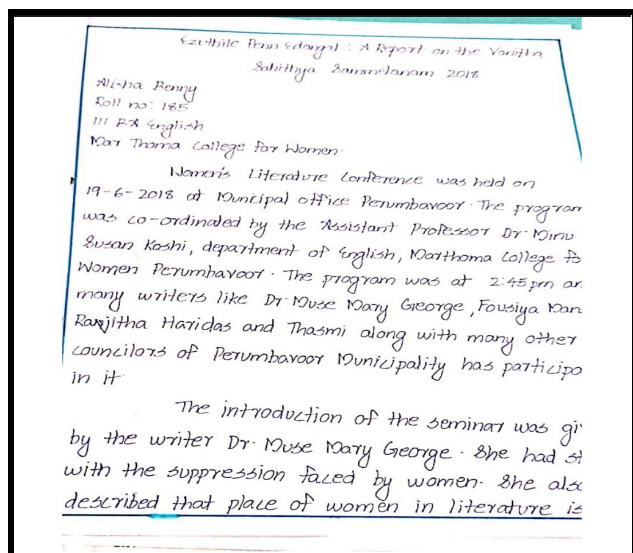 Ezuthile Penn Edangal : A Report on the Vanitha
Sahithya Sammelanam 2018
Alisha Benny
Roll no: 185
III BA English
Mar Thoma College for Women.
Women's Literature Conference was held on
19-6-2018 at Muncipal office Perumbavoor. The program
was co-ordinated by the Assistant Professor Dr. Minu
Susan Koshi, department of English, Marthoma College fo
Women Perumbavoor. The program was at 2:45pm an
many writers like Dr. Muse Mary George, Fousiya Man
Ranjitha Haridas and Thasmi along with many other
councilors of Perumbavoor Municipality has participa
in it
The introduction of the seminar was gi
by the writer Dr. Muse Mary George. She had st
with the suppression faced by women. She also
described that place of women in literature is